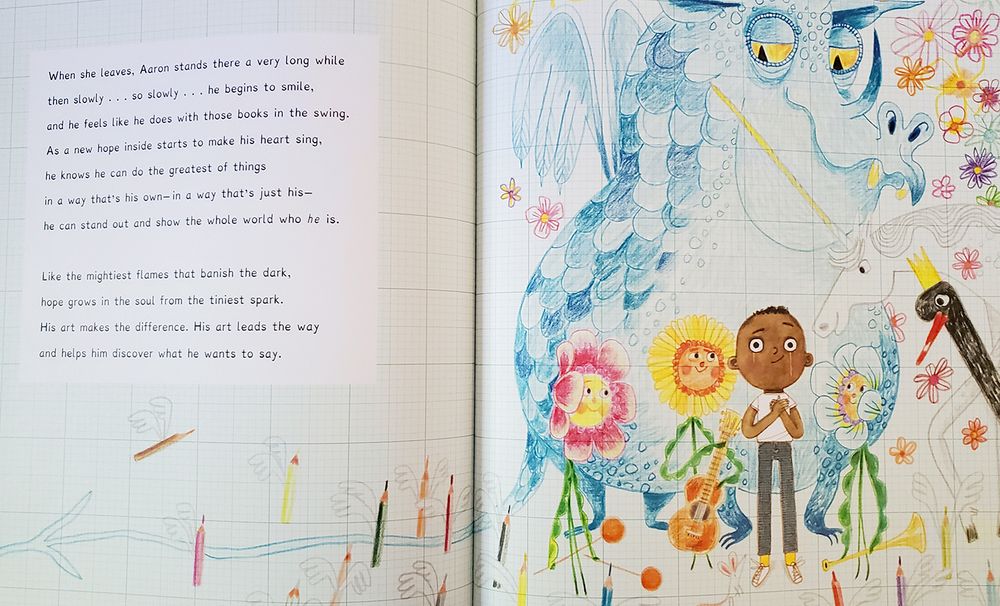 When she leaves, Aaron stands there a very long while
then slowly . . . so slowly . . . he begins to smile,
and he feels like he does with those books in the swing.
As a new hope inside starts to make his heart sing,
he knows he can do the greatest of things
in a way that's his own—in a way that's just his—
he can stand out and show the whole world who he is.
Like the mightiest flames that banish the dark,
hope grows in the soul from the tiniest spark.
His art makes the difference. His art leads the way
and helps him discover what he wants to say.